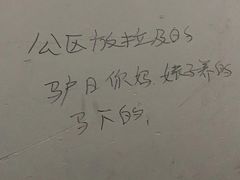 公区放拉及的
驴日你妈.婊子养的
马下的.